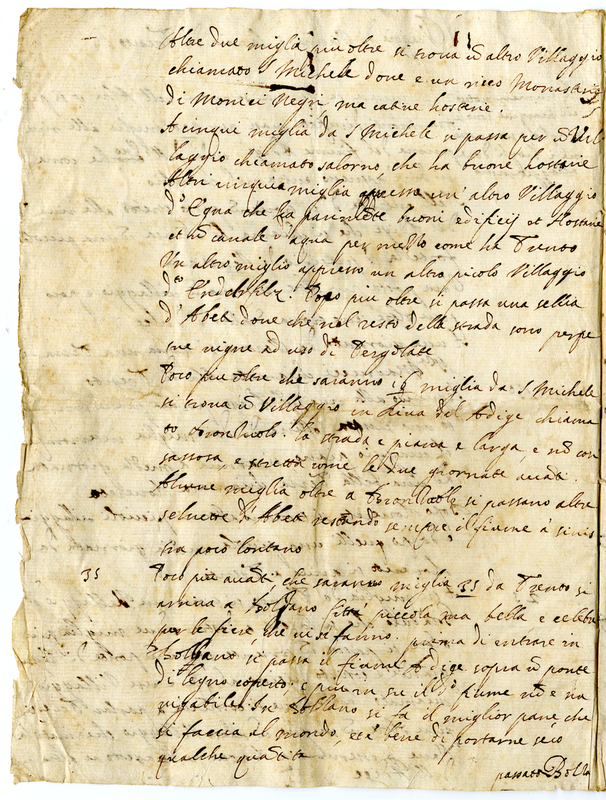 Altre due miglia piu oltre si trova ũ altro Villaggio
chiamato S Michele doue e un ricco Monasterio
di Monici Negri, ma catiue hostarie.
A cinqui miglia da S Michele si passa per ũ Vil
laggio chiamato salorno, che ha buone hostarie
Altri cinqui miglia appresso un' altro Villaggio
dᵒ Egna che ha buoni edificij et Hostarie
et ũ canale d'aqua per mezzo come ha Trento
Un altro miglio appresso un altro picolo Villaggio
dᵒ Poco piu oltre si passa una selua
d'Abeti doue che nel resto della strada sono perpe
tue uigne ad uso di Pergolate
Poco piu oltre che saranno 16 miglia da S Michele
si troua ũ Villaggio in Riua del Adige chiama
to Bronzuolo. la strada e piana e larga, e nõ con
sassosa, e stretta come le due giornate auãti.
Alcune miglia oltre a si passano altre
seluette d'Abeti restando sempre il fiume à sinis
tra poco lontano
35 Poco piu auãti, che saranno miglia 35 da Trento si
arriua a Bolzano Città piccola ma bella e celebre
per le fiere, che ui si fanno. prima di entrare in
Bolzano si passa il fiume Adige sopra ũ ponte
di legno coperto: e piu in su il dᵒ fiume nõ e na
uigabile. In Bolzano si fa il miglior pane che
si faccia al mondo, et e bene di portarne seco
qualche quãtita
passato Bolza